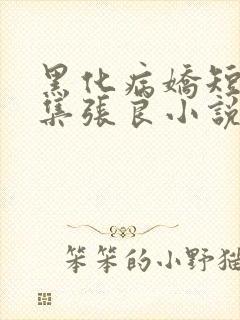 黑化病嬌短
集張良小說
笨笨的小野猫